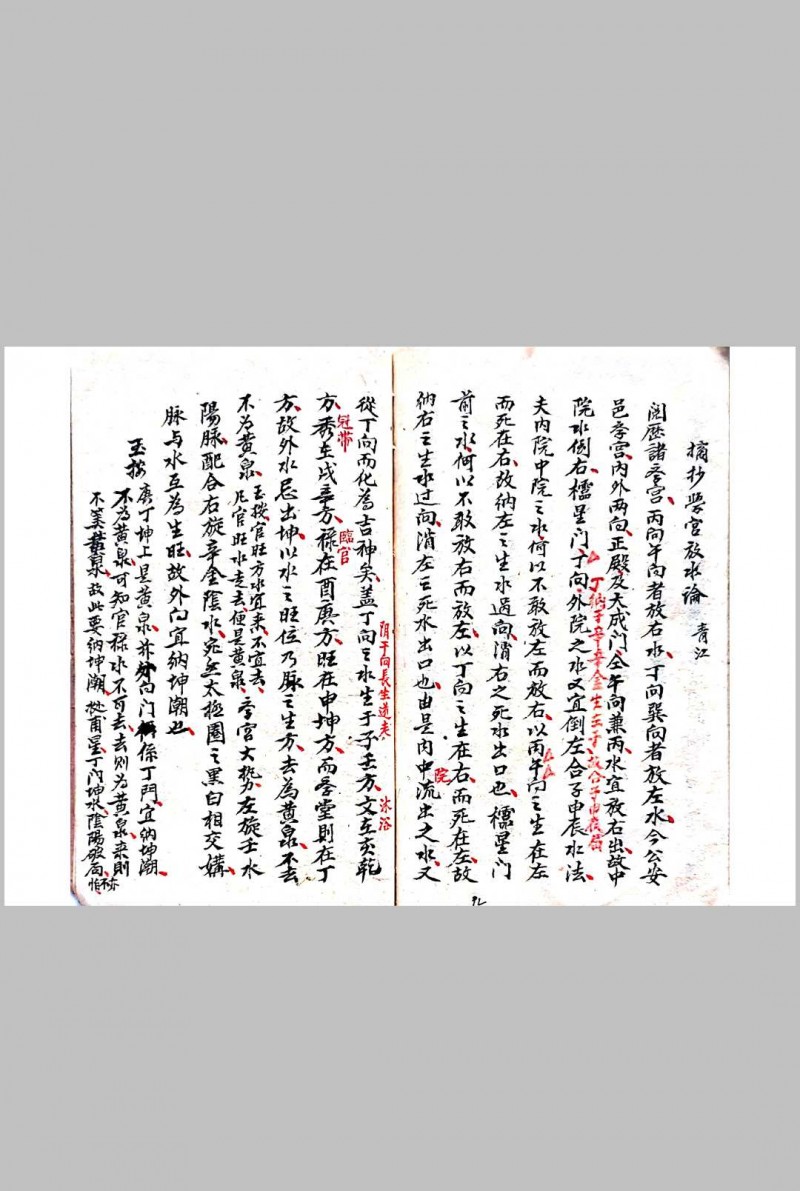 摘抄學宮放水論 青江
閱歷諸學宮丙向午向者放右水丁向巽向者放左水今公安
邑李宮內外兩向正殿及大成門全午向兼丙水宜放右出故中
院水倒右櫺星門丁向外院之水又宜倒左合子申辰水法
丁納辛金生壬子故合子申辰局
夫內院中院之水何以不敢放左而放右以丙午向之生在左
而死在右故納左之生水過向消右之死水出口也櫺星門
前之水何以不敢放右而放左以丁向之生在右而死在左故
納右之生水过向消左之死水出口也由是內中流出之水又
院
從丁向而化為吉神矣蓋丁向之水生于子壬方文在亥乾
阴干向長生逆走
沐浴
方秀在戌辛方祿在酉庚方旺在申坤方而學堂則在丁
冠带
臨官
方故外水忌出坤以水之旺位乃脉之生方去為黃泉不去
不為黃泉
玉按官旺方水宜来不宜去
凡官旺水走去便是黃泉
李宮大势左旋壬水
陽脉配合右旋辛金陰水死無太極圈之黑白相交媾
脉与水互為生旺故外向宜納坤潮也
玉按
庚丁坤上是黃泉並外向門係丁門宜納坤潮
不為黃泉可知官祿水不可去去則為黃泉来則
不美黃泉故此要納坤潮從甫星丁門坤水陰陽破局亦不怕